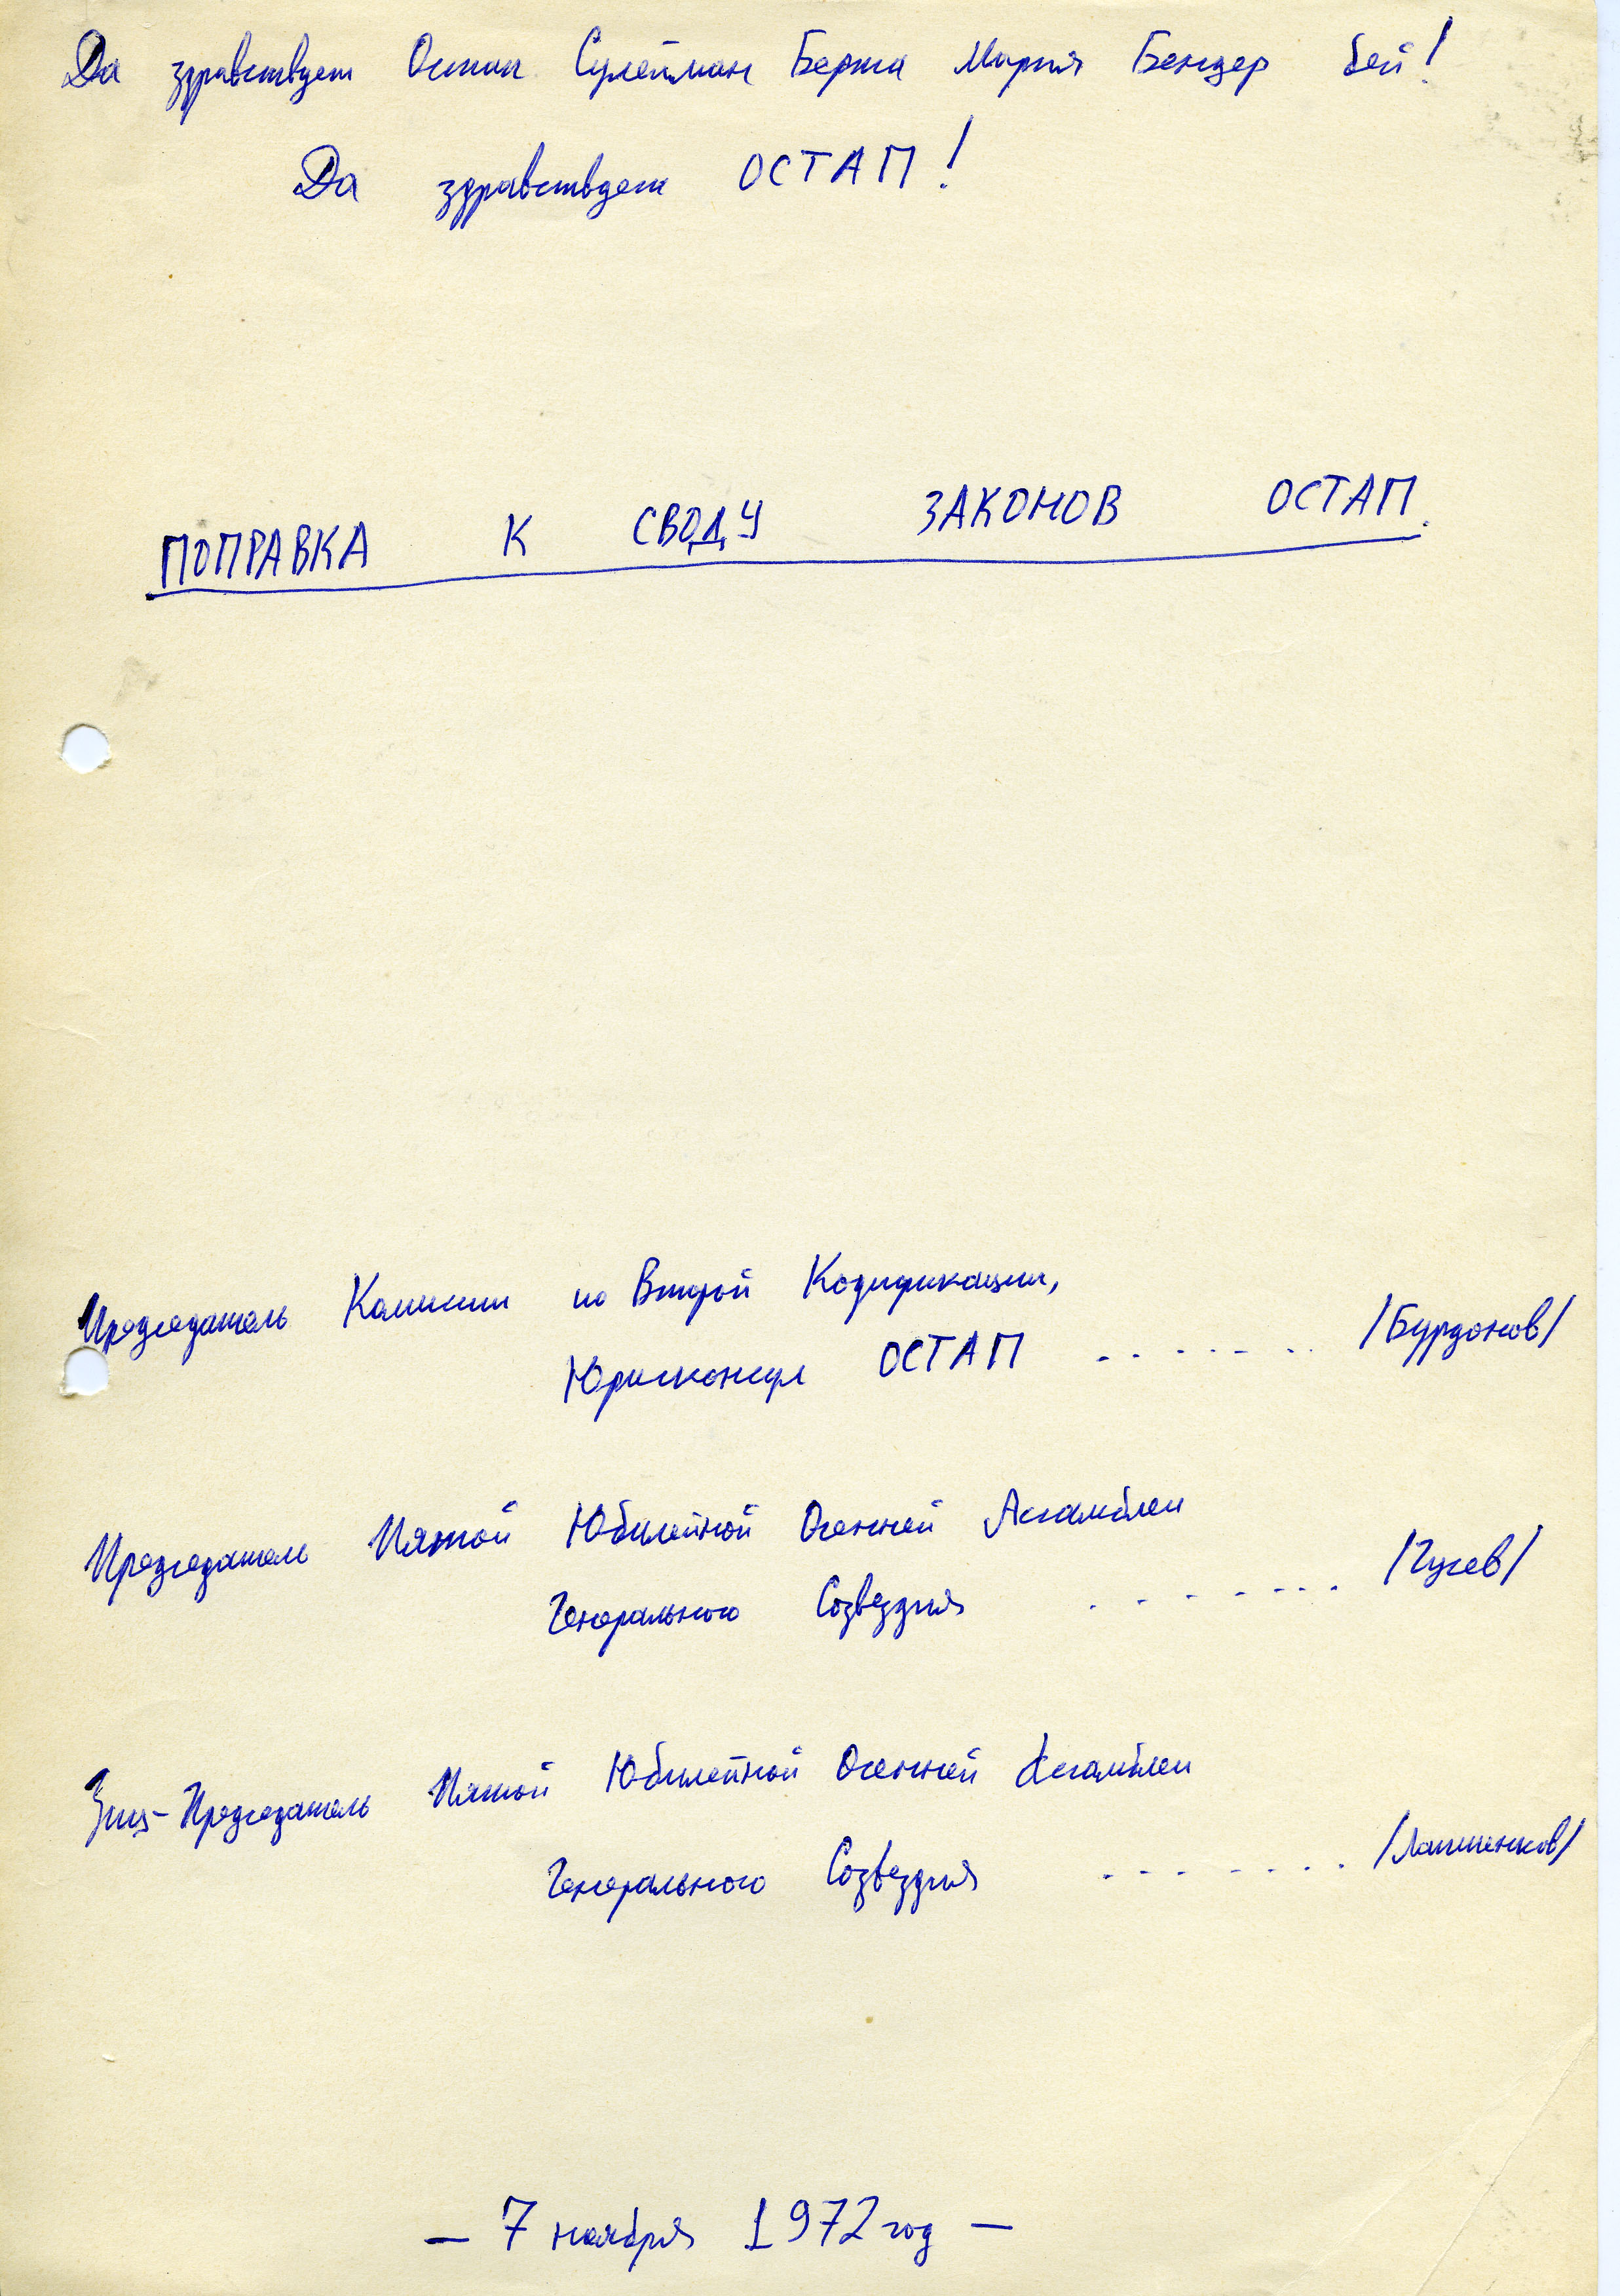 Да здравствует Остап Сулейман Берта Мария Бендер бей!
Да здравствует ОСТАП!
ПОПРАВКА К СВОДУ ЗАКОНОВ ОСТАП.
Председатель Комиссии по Второй Кодификации,
Юрисконсул ОСТАП . . . . . . . /Бурдонов/
Председатель Пятой Юбилейной Осенней Ассамблеи
Генерального Созвездия . . . . . . . /Гусев/
Зиц-Председатель Пятой Юбилейной Осенней Ассамблеи
Генерального Созвездия . . . . . . . /Лапшенков/
— 7 ноября 1972 год —